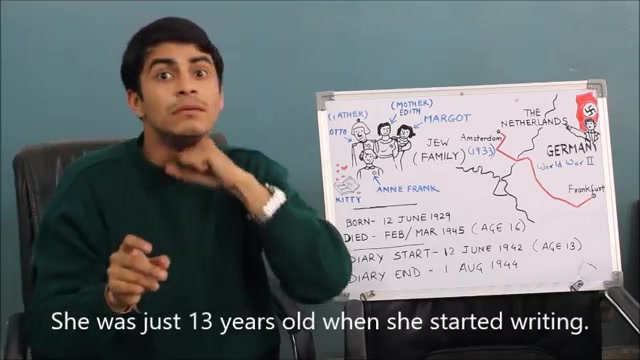 (FATHER)
OTTO
(MOTHER)
EDITH
MARGOT
JEW
(FAMILY)
ANNE FRANK
KITTY
THE
NETHERLANDS
Amsterdam
(1933)
GERMANY
World War II
Frankfurt
BORN- 12 JUNE 1929
DIED - FEB/MAR 1945 (AGE 16)
DIARY START- 12 JUNE 1942 (AGE 13)
DIARY END - 1 AUG 1944
She was just 13 years old when she started writing.